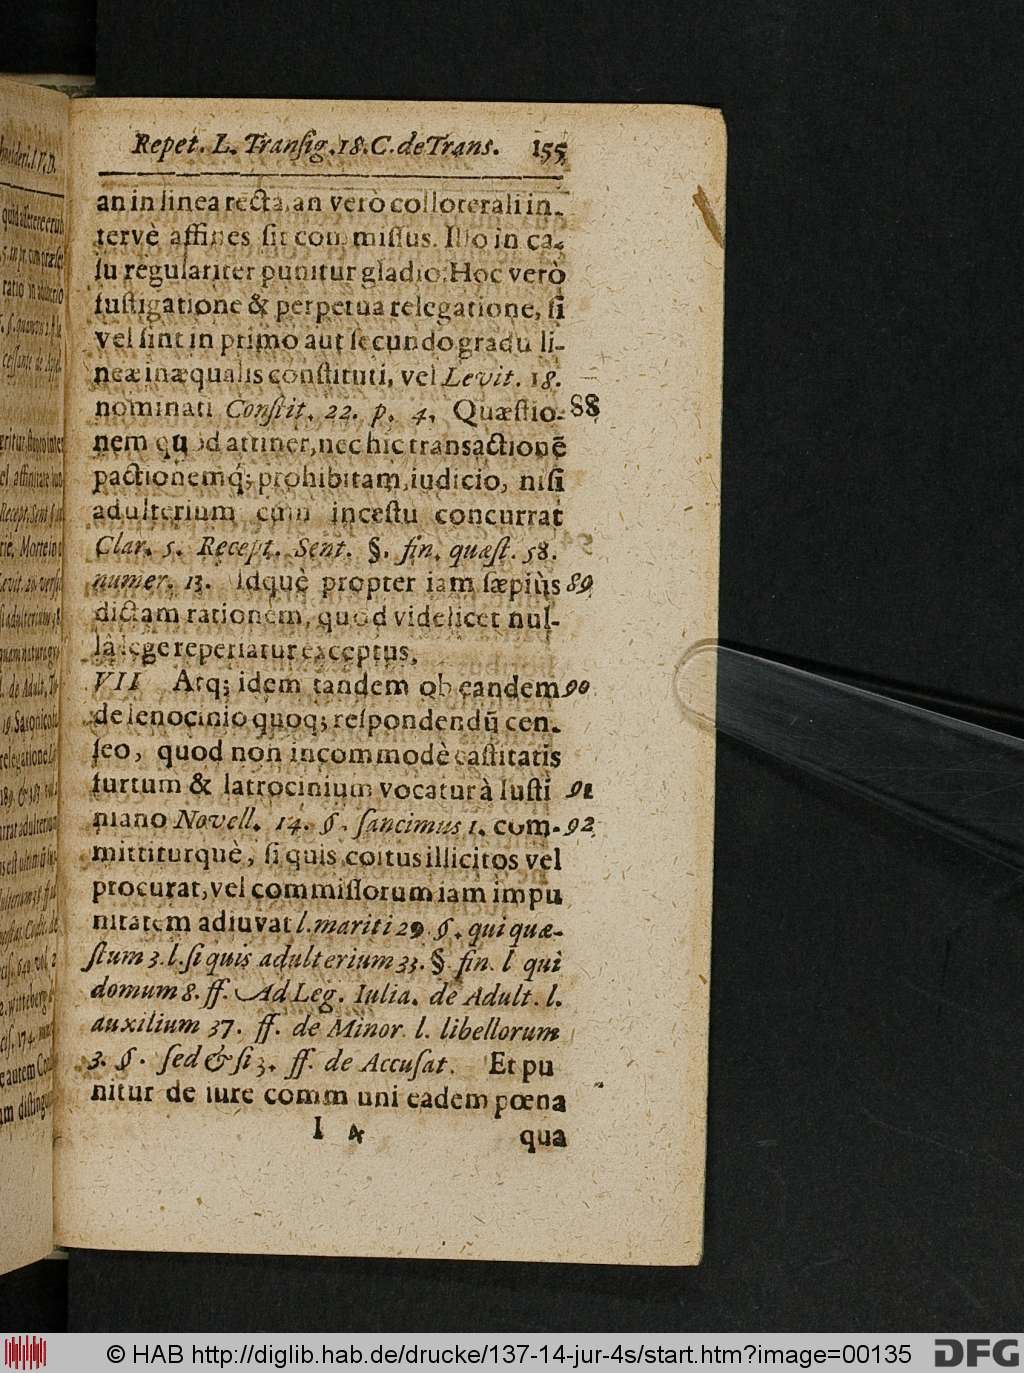 Repet. L. Transig. 18. C. de Trans. 155
an in linea recta, an verò colloterali in-
tervè affines sit commissus. Illo in ca-
su regulariter punitur gladio: Hoc verò
fustigatione & perpetua relegatione, si
vel sint in primo aut secundo gradu li-
neæ inæqualis constituti, vel Levit. 18.
nominati Constit. 22. p. 4. Quæstio- 88
nem quod attinet, nec hic transactionẽ
pactionemq́; prohibitam, iudicio, nisi
adulterium cum incestu concurrat
Clar. 5. Recept. Sent. §. fin. quæst. 58.
numer. 13. Idquè propter iam sæpiùs 89
dictam rationem, quod videlicet nul-
lâ lege reperiatur exceptus.
VII Atq; idem tandem ob eandem 90
de lenocinio quoq; respondendũ cen-
seo, quod non incommodè castitatis
furtum & latrocinium vocatur à Iusti 91
niano Novell. 14. §. sancimus 1. com- 92
mittiturquè, si quis coitus illicitos vel
procurat, vel commissorum iam impu
nitatem adiuvat l. mariti 29 §. qui quæ-
stum 3. l. si quis adulterium 33. §. fin. l qui
domum 8. ff. Ad Leg. Iulia. de Adult. l.
auxilium 37. ff. de Minor. l. libellorum
3. §. sed & si 3. ff. de Accusat. Et pu
nitur de iure comm uni eadem pœna
I 4 qua
© HAB http://diglib.hab.de/drucke/137-14-jur-4s/start.htm?image=00135
DFG